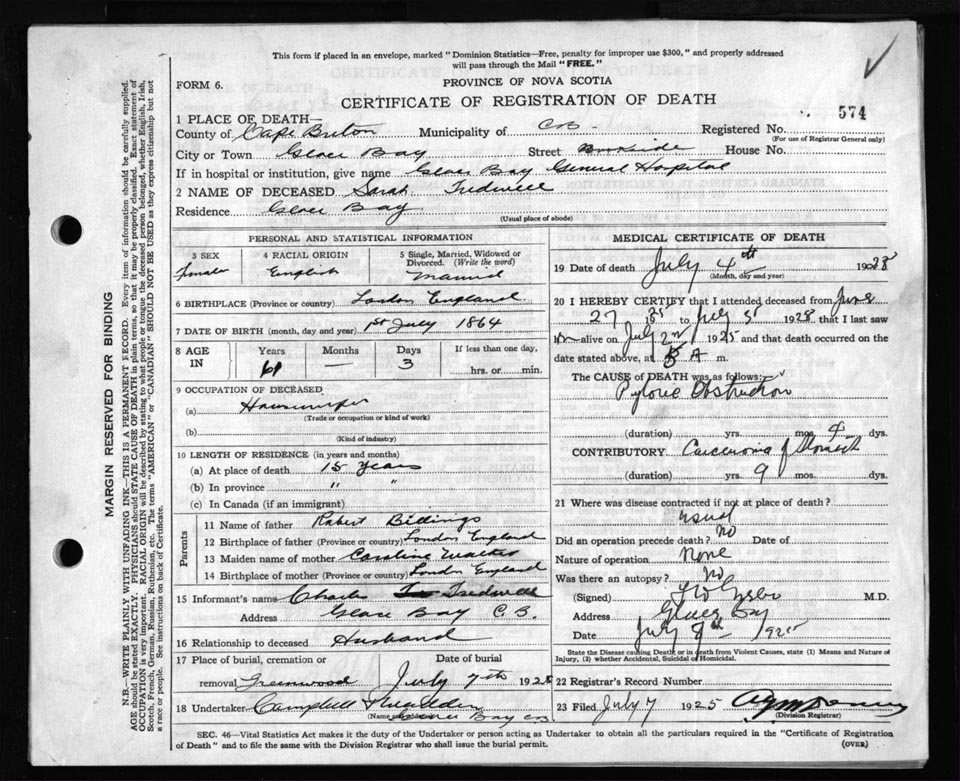 This form if placed in an envelope, marked "Dominion Statistics—Free, penalty for improper use $300," and properly addressed
will pass through the Mail "FREE."
FORM 6.
PROVINCE OF NOVA SCOTIA
CERTIFICATE OF REGISTRATION OF DEATH
574
1 PLACE OF DEATH—
County of Cape Breton Municipality of C.B. Registered No.
(For use of Registrar General only)
City or Town Glace Bay Street Brookside House No.
If in hospital or institution, give name Glace Bay General Hospital
2 NAME OF DECEASED Sarah Tredwell
Residence Glace Bay
(Usual place of abode)
PERSONAL AND STATISTICAL INFORMATION
3 SEX
Female
4 RACIAL ORIGIN
English
5 Single, Married, Widowed or
Divorced. (Write the word)
Married
6 BIRTHPLACE (Province or country) London England
7 DATE OF BIRTH (month, day and year) 1st July 1864
8 AGE
IN
Years Months Days If less than one day,
61 — 3 hrs. or min.
9 OCCUPATION OF DECEASED
(a) Housewife
(Trade or occupation or kind of work)
(b)
(Kind of industry)
10 LENGTH OF RESIDENCE (in years and months)
(a) At place of death 15 years
(b) In province " "
(c) In Canada (if an immigrant)
Parents
11 Name of father Robert Billings
12 Birthplace of father (Province or country) London England
13 Maiden name of mother Caroline Walter
14 Birthplace of mother (Province or country) London England
15 Informant's name Charles Tredwell
Address Glace Bay C.B.
16 Relationship to deceased Husband
17 Place of burial, cremation or Date of burial
removal Greenwood July 7th 1925
18 Undertaker Campbell
(Name and address) Glace Bay CB
MEDICAL CERTIFICATE OF DEATH
19 Date of death July 4th
(Month, day and year)
20 I HEREBY CERTIFY that I attended deceased from June
27 1925 to July 3 1925 that I last saw
alive on July 2nd 1925 and that death occurred on the
date stated above, at A m.
The CAUSE of DEATH was as follows:
Pyloric Obstruction
(duration) yrs. mos. dys.
CONTRIBUTORY Carcinoma of Stomach
(duration) yrs. 9 mos. dys.
21 Where was disease contracted if not at place of death?
usual
Did an operation precede death? No Date of
Nature of operation None
Was there an autopsy? No
(Signed) M.D.
Address Glace Bay
Date July 8th 1925
State the Disease causing Death, or in death from Violent Causes, state (1) Means and Nature of
Injury, (2) whether Accidental, Suicidal or Homicidal.
22 Registrar's Record Number
23 Filed July 7 1925
(Division Registrar)
SEC. 46—Vital Statistics Act makes it the duty of the Undertaker or person acting as Undertaker to obtain all the particulars required in the "Certificate of Registration
of Death" and to file the same with the Division Registrar who shall issue the burial permit. (OVER)
MARGIN RESERVED FOR BINDING
N.B.—WRITE PLAINLY WITH UNFADING INK—THIS IS A PERMANENT RECORD. Every item of information should be carefully supplied.
AGE should be stated EXACTLY. PHYSICIANS should STATE CAUSE OF DEATH in plain terms, so that it may be properly classified. Exact statement of
OCCUPATION is very important. RACIAL ORIGIN will be described by stating to what people or tongue the deceased person belonged, whether English, Irish,
Scotch, French, German, Russian, Ruthenian, etc. The terms "AMERICAN" or "CANADIAN" SHOULD NOT BE USED as they express citizenship but not
a race or people. See instructions on back of Certificate.